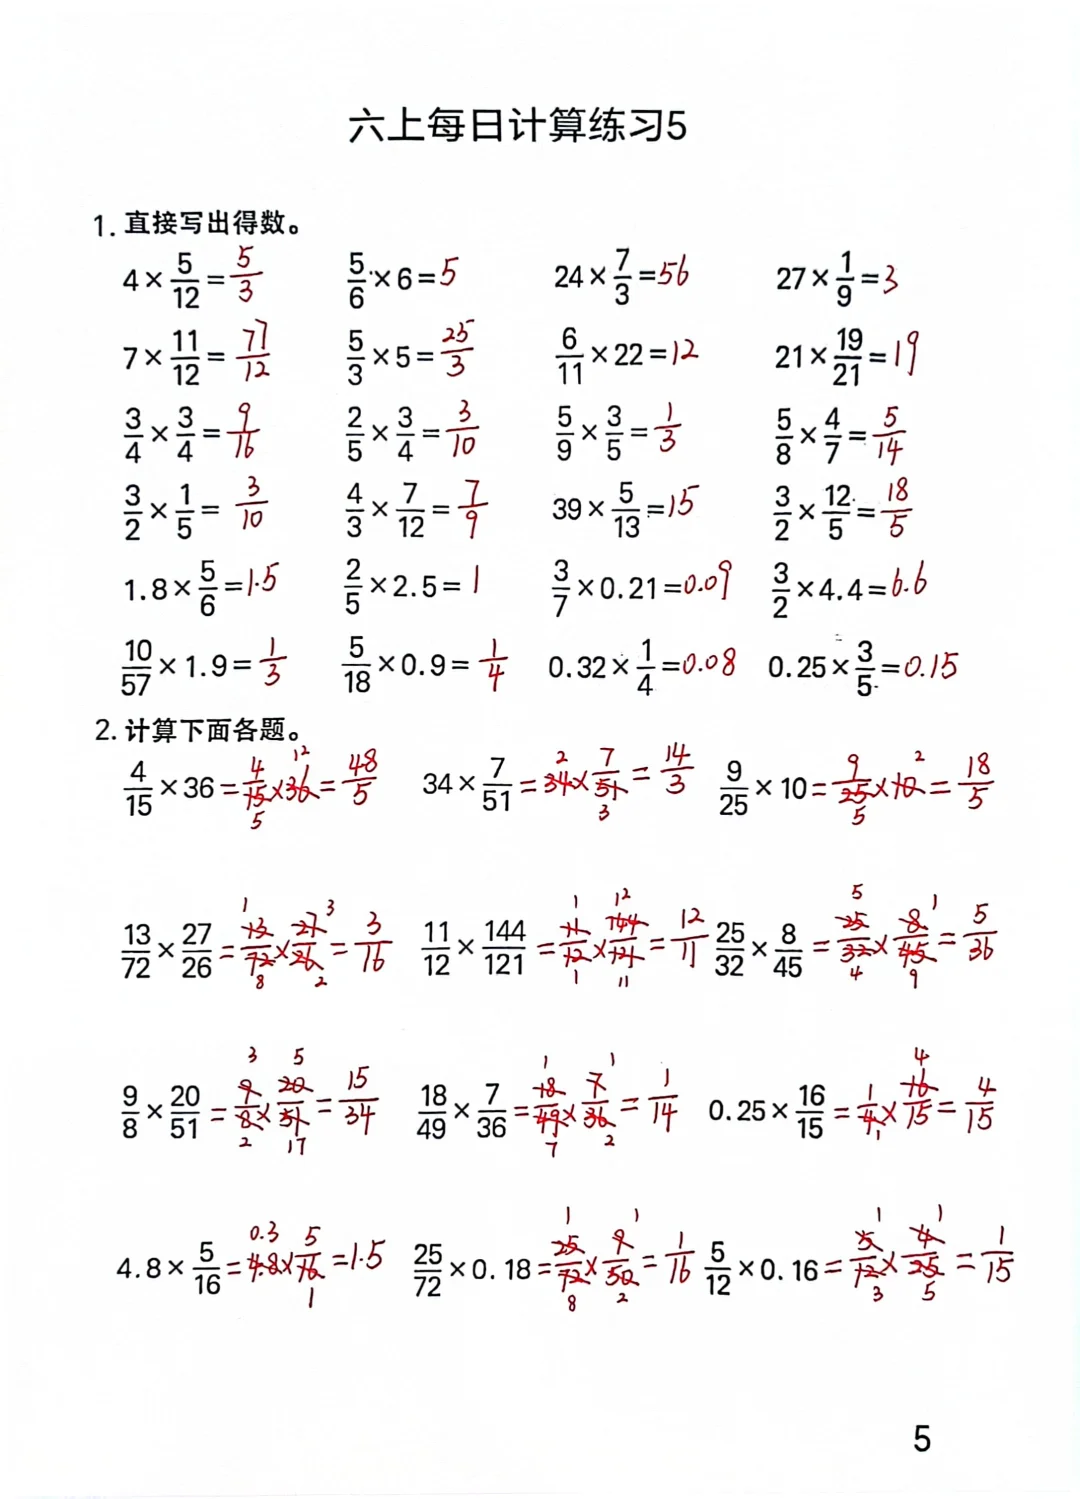 六上每日计算练习5
1. 直接写出得数。
4 × 5/12 = 5/3    5/6 × 6 = 5    24 × 7/3 = 56    27 × 1/9 = 3
7 × 11/12 = 77/12    5/3 × 5 = 25/3    6/11 × 22 = 12    21 × 19/21 = 19
3/4 × 3/4 = 9/16    2/5 × 3/4 = 3/10    5/9 × 3/5 = 1/3    5/8 × 4/7 = 5/14
3/2 × 1/5 = 3/10    4/3 × 7/12 = 7/9    39 × 5/13 = 15    3/2 × 12/5 = 18/5
1.8 × 5/6 = 1.5    2/5 × 2.5 = 1    3/7 × 0.21 = 0.09    3/2 × 4.4 = 6.6
10/57 × 1.9 = 1/3    5/18 × 0.9 = 1/4    0.32 × 1/4 = 0.08    0.25 × 3/5 = 0.15
2. 计算下面各题。
12    2 7    9 2
4/15 × 36 = 4/15 × 36 = 48/5    34 × 7/51 = 34 × 7/51 = 14/3    9/25 × 10 = 9/25 × 10 = 18/5
5    3    5
1 3    1 12    5 1
13/72 × 27/26 = 13/72 × 27/26 = 3/16    11/12 × 144/121 = 11/12 × 144/121 = 12/11    25/32 × 8/45 = 25/32 × 8/45 = 5/36
8 2    1 11    4 9
3 5    1 1    4
9/8 × 20/51 = 9/8 × 20/51 = 15/34    18/49 × 7/36 = 18/49 × 7/36 = 1/14    0.25 × 16/15 = 1/4 × 16/15 = 4/15
2 17    7 2    1
0.3    1 1    1 1
4.8 × 5/16 = 4.8 × 5/16 = 1.5    25/72 × 0.18 = 25/72 × 9/50 = 1/16    5/12 × 0.16 = 5/12 × 4/25 = 1/15
1    8 2    3 5
5